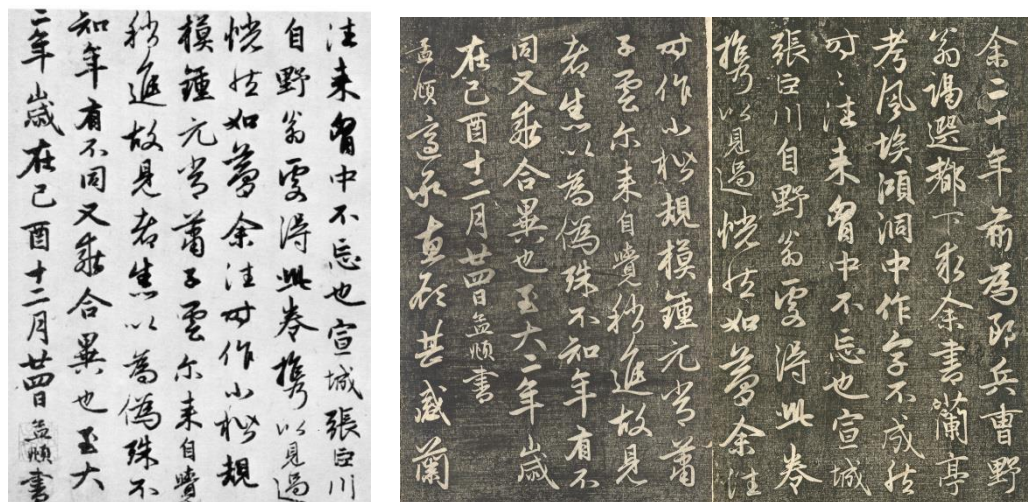 往来胷中不忘也宣城張臣川
自野翁處得此卷攜以見過
恍然如夢余往時作小楷規
模鍾元常蕭子雲尓来自覺
稍進故見者悉以為偽殊不
知年有不同又乖合異也至大
二年歲在己酉十二月廿四日孟頫書
余二十年前為郎兵曹野
翁謁選都下求余書蘭亭
考風埃澒洞中作字不成然
時々往来胷中不忘也宣城
張臣川自野翁處得此卷
攜以見過恍然如夢余往
時作小楷規模鍾元常蕭
子雲尓来自覺稍進故見
者悉以為偽殊不知年有不
同又乖合異也至大二年歲
在己酉十二月廿四日孟頫書
孟頫 承 甚感蘭